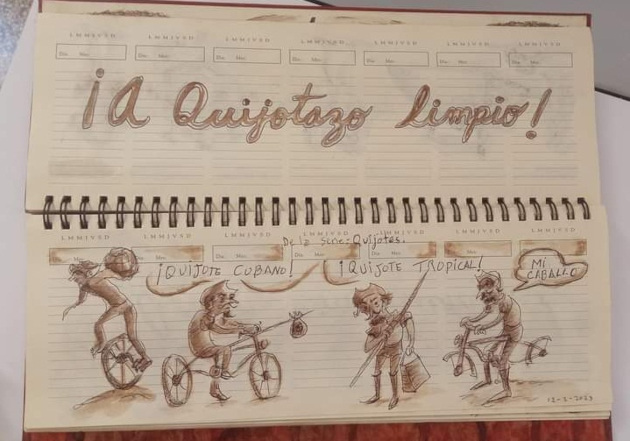 L M M J V S D L M M J V S D L M M J V S D L M M J V S D L M M J V S D L M M J V S D L M M J V S D
Día: Mes: Día: Mes: Día: Mes: Día: Mes: Día: Mes: Día: Mes: Día: Mes:
¡A Quijotazo limpio!
L M M J V S D L M M J V S D L M M J V S D L M M J V S D L M M J V S D L M M J V S D L M M J V S D
De la serie: Quijotes.
¡QUIJOTE CUBANO!
¡QUIJOTE TROPICAL!
MI
CABALLO